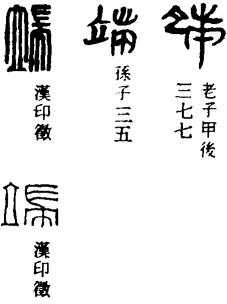 老子甲後
三七七
端
孫子三五
端
漢印徵
端
漢印徵